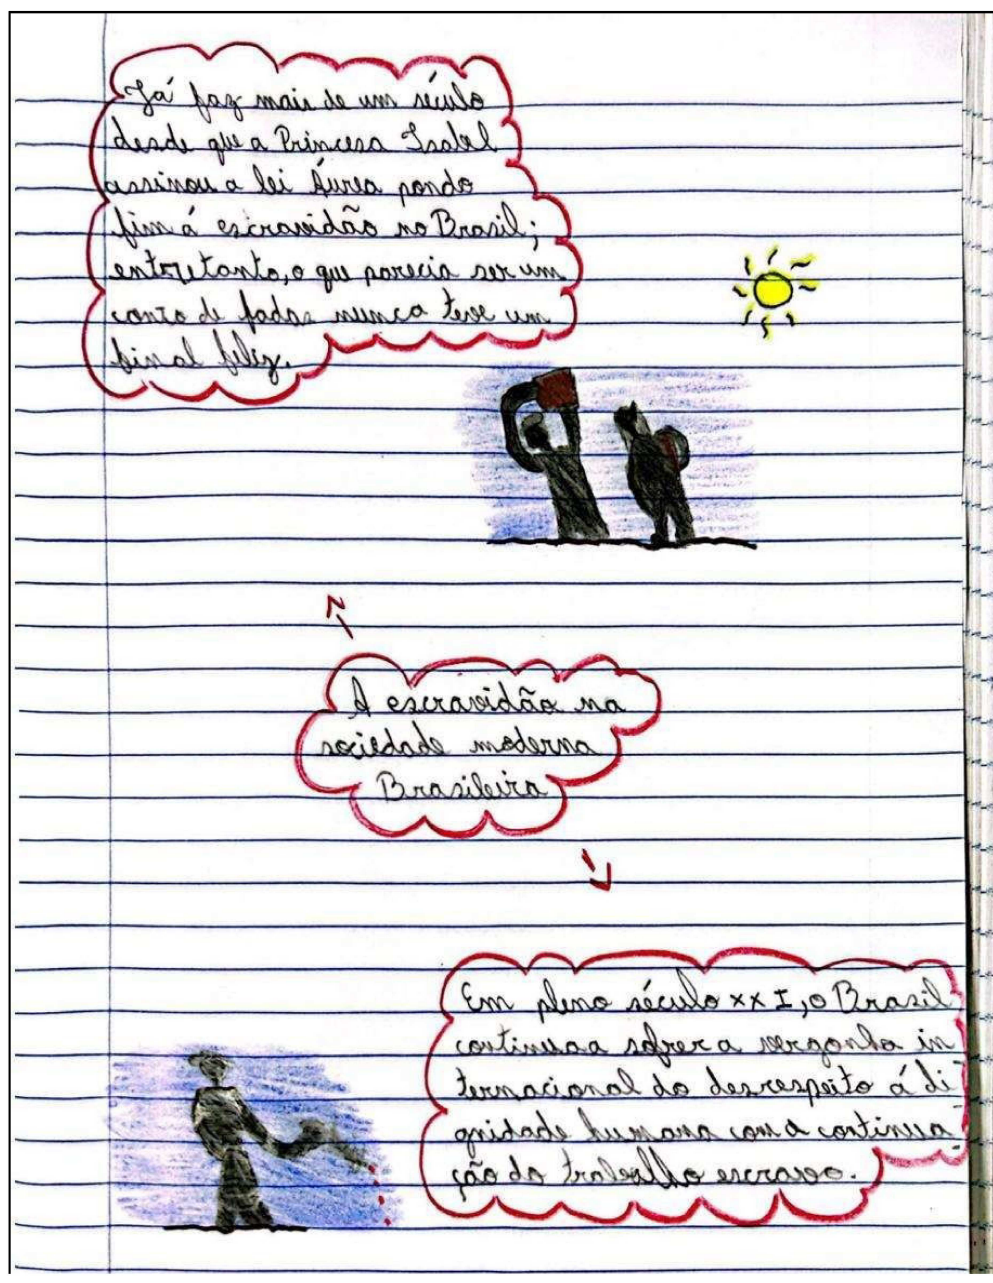 Já faz mais de um século
desde que a Princesa Isabel
assinou a lei Áurea pondo
fim á escravidão no Brasil;
entretanto, o que parecia ser um
conto de fadas nunca teve um
final feliz.
A escravidão na
sociedade moderna
Brasileira
Em pleno século XXI, o Brasil
continua a sofrer a vergonha in
ternacional do desrespeito á di
gnidade humana com a continua
ção do trabalho escravo.